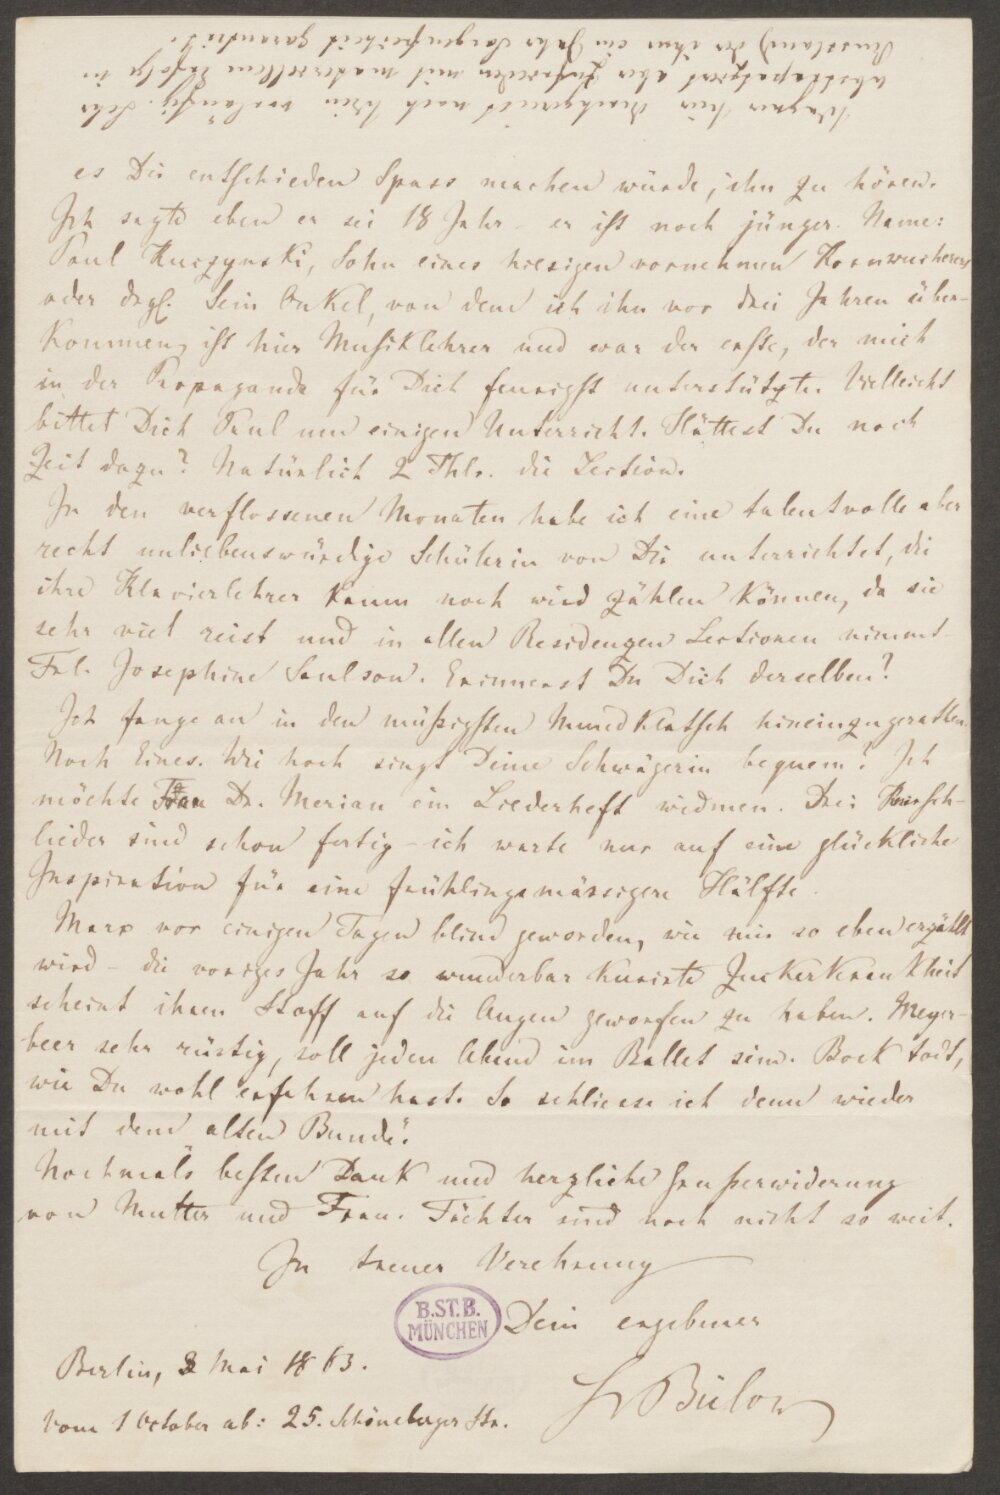 Wagner hier durchgereist nach Wien vorläufig. Sehr
abstrapazirt aber zufrieden mit materiellem Erfolge in
Russland) der ihm ein Jahr Sorgenfreiheit garantirt.
es Dir entschieden Spass machen würde, ihn zu hören.
Ich sagte eben er sei 18 Jahr – er ist noch jünger. Name:
Paul Kuczynski, Sohn eines hiesigen vornehmen Kornwucherers
oder drgl. Sein Onkel, von dem ich ihn vor drei Jahren über-
kommen, ist hier Musiklehrer und war der erste, der mich
in der Propaganda für Dich feurigst unterstützte. Vielleicht
bittet Dich Paul um einigen Unterricht. Hättest Du noch
Zeit dazu? Natürlich 2 Thlr. die Lection.
In den verflossenen Monaten habe ich eine talentvolle aber
recht unliebenswürdige Schülerin von Dir unterrichtet, die
ihre Klavierlehrer kaum noch wird zählen können, da sie
sehr viel reist und in allen Residenzen Lectionen nimmt
Frl. Josephine Saulson. Erinnerst Du Dich derselben?
Ich fange an in den müßigsten Mundklatsch hineinzugerathen.
Noch Eines. Wie hoch singt Deine Schwägerin bequem? Ich
möchte Frau Dr. Merian ein Liederheft widmen. Drei
lieder sind schon fertig – ich warte nur auf eine glückliche
Inspiration für eine frühlingsmässigere Hälfte.
Marx vor einigen Tagen blind geworden, wie mir so eben erzählt
wird – die voriges Jahr so wunderbar kurirte Zuckerkrankheit
scheint ihren Stoff auf die Augen geworfen zu haben. Meyer-
beer sehr rüstig, soll jeden Abend im Ballet sein. Bock todt,
wie Du wohl erfahren hast. So schliesse ich denn wieder
mit dem „alten Bunde“.
Nochmals besten Dank und herzliche Grußerwiderung
von Mutter und Frau. Töchter sind noch nicht so weit.
In treuer Verehrung
Dein ergebener
B.ST.B.
MÜNCHEN
Berlin, 8 Mai 1863.
HvBülow
Vom 1 October ab: 25. Schöneberger Str.